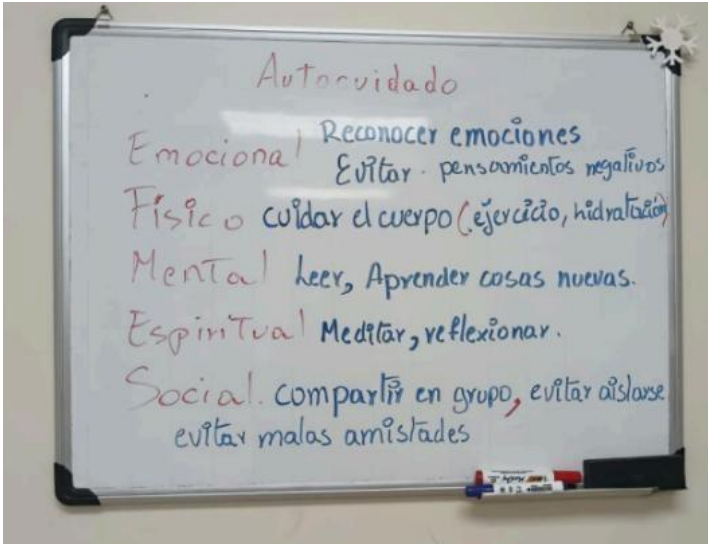 Autocuidado
Emocional Reconocer emociones
Evitar. pensamientos negativos
Físico cuidar el cuerpo (ejercicio, hidratación)
Mental Leer, Aprender cosas nuevas.
Espiritual Meditar, reflexionar.
Social. compartir en grupo, evitar aislarse
evitar malas amistades